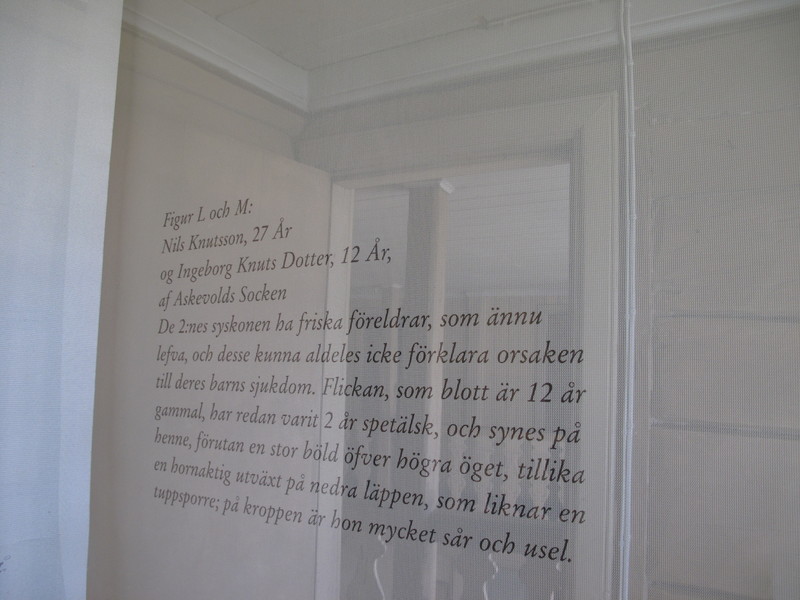 Figur L och M:
Nils Knutsson, 27 År
og Ingeborg Knuts Dotter, 12 År,
af Askevolds Socken
De 2:nes syskonen ha friska föreldrar, som ännu
lefva, och desse kunna aldeles icke förklara orsaken
till deres barns sjukdom. Flickan, som blott är 12 år
gammal, har redan varit 2 år spetälsk, och synes på
henne, förutan en stor böld öfver högra öget, tillika
en hornaktig utväxt på nedra läppen, som liknar en
tuppsporre; på kroppen är hon mycket sår och usel.